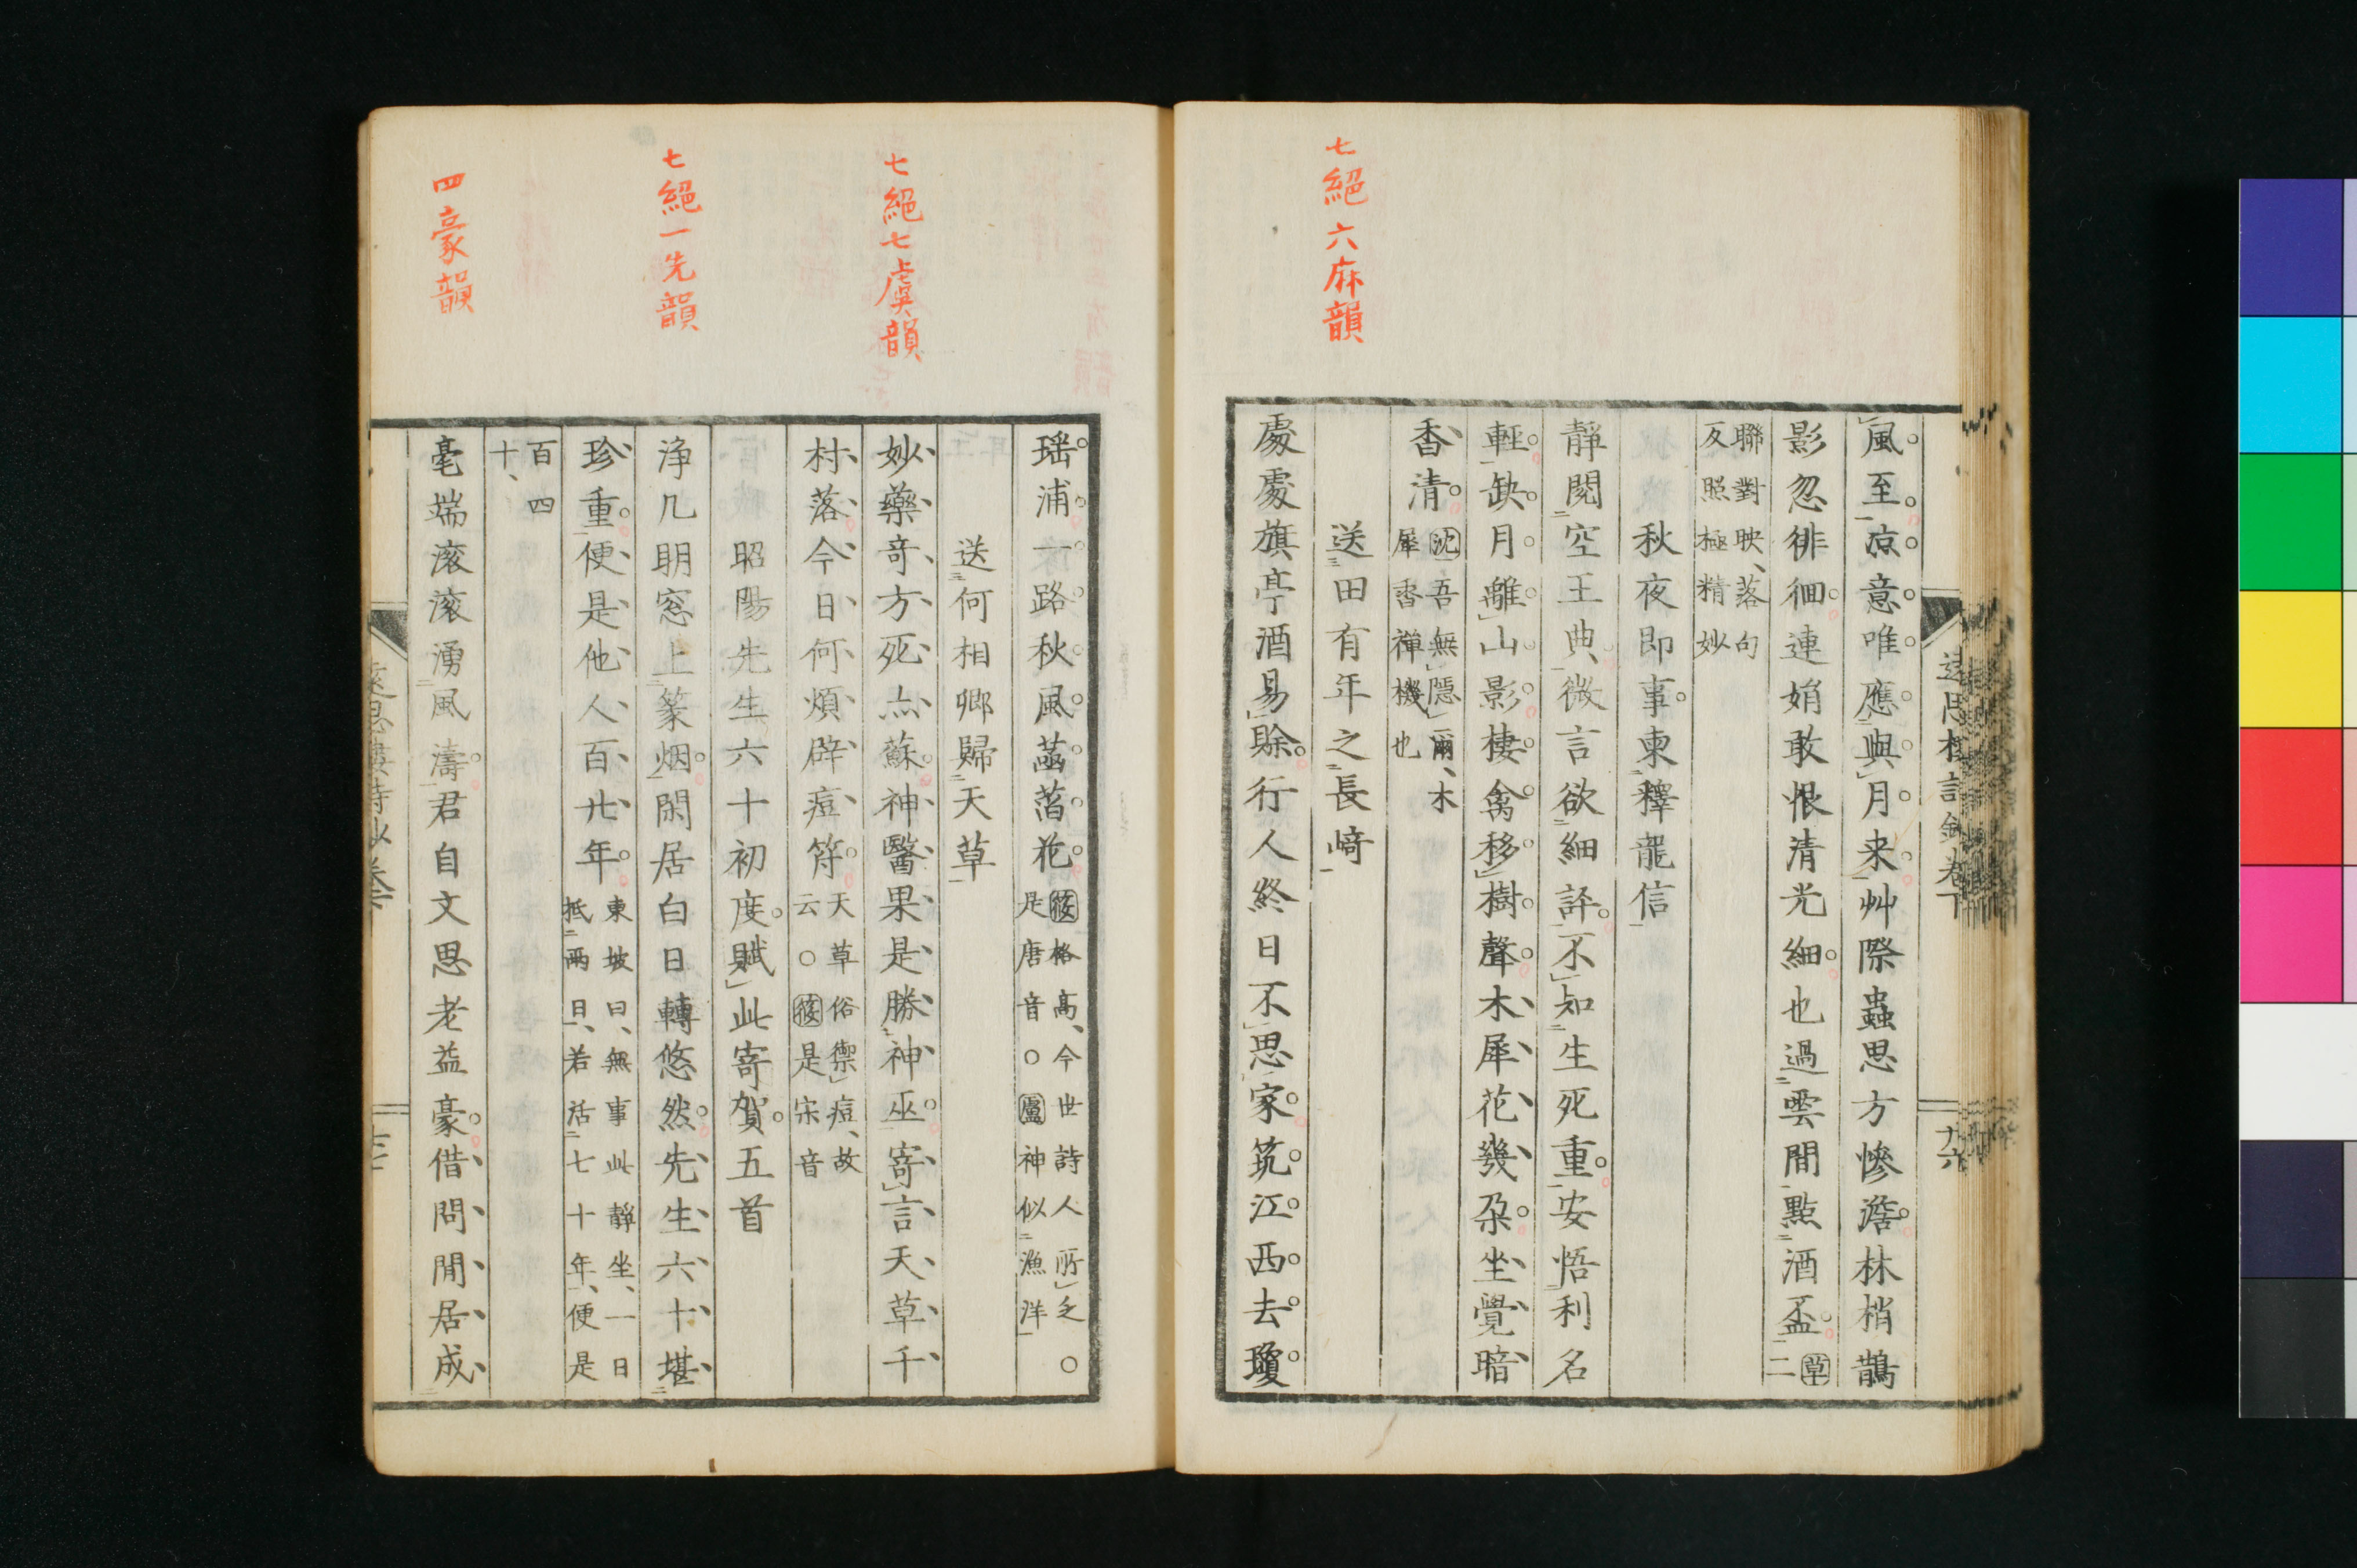 七絕六麻韻
風至涼意唯應與月来艸際蟲思方慘澹林梢鵲
影忽徘徊連娟敢恨清光細也過雲間點酒盃草二
聯對映落句
反照極精妙
秋夜即事柬釋龍信
靜閱空王典微言欲細評不知生死重安悟利名
輕缺月離山影棲禽移樹聲木犀花幾朶坐覺暗
香清
沈吾無隱爾木
犀香禪機也
送田有年之長﨑
處處旗亭酒易賖行人終日不思家筑江西去瓊
遠思樓詩鈔卷下
七絕七虞韻
七絕一先韻
四豪韻
瑶浦一路秋風菡萏花
筱格高今世詩人所乏○
是唐音○盧神似漁洋
送何相鄉歸天草
妙藥奇方死亦蘇神醫果是勝神巫寄言天草千
村落今日何煩辟痘符
天草俗禦痘故
云○筱是宋音
昭陽先生六十初度賦此寄賀五首
浄几明窓上篆烟閑居白日轉悠然先生六十堪
珍重便是他人百廿年
東坡曰無事此靜坐一日
抵兩日若活七十年便是
百四
十
毫端滚滚湧風濤君自文思老益豪借問閒居成
遠思樓詩鈔卷下